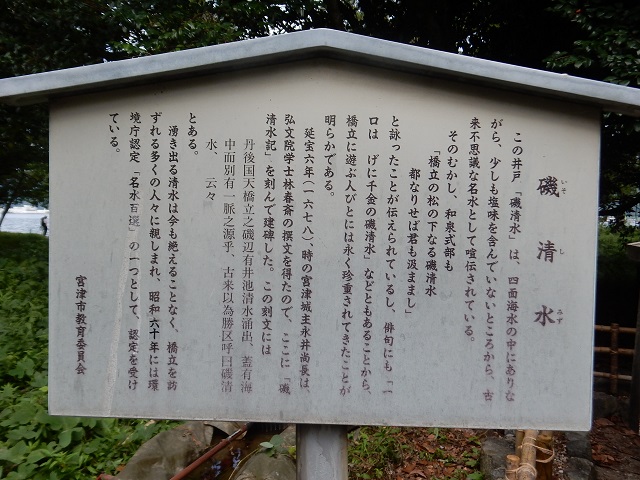 磯清水
いそ し みず
この井戸「磯清水」は、四面海水の中にありな
がら、少しも塩味を含んでいないところから、古
来不思議な名水として喧伝されている。
そのむかし、和泉式部も
「橋立の松の下なる磯清水
都なりせば君も汲ままし」
と詠ったことが伝えられているし、俳句にも「一
口は げに千金の磯清水」などともあることから、
橋立に遊ぶ人びとには永く珍重されてきたことが
明らかである。
延宝六年(一六七八)、時の宮津城主永井尚長は、
弘文院学士林春斎の撰文を得たので、ここに「磯
清水記」を刻んで建碑した。この刻文には
丹後国天橋立之磯辺有井池清水涌出、蓋有海
中而別有一脈之源乎、古来以為勝区呼曰磯清
水、云々
とある。
湧き出る清水は今も絶えることなく、橋立を訪
ずれる多くの人々に親しまれ、昭和六十年には環
境庁認定「名水百選」の一つとして、認定を受け
ている。
宮津市教育委員会